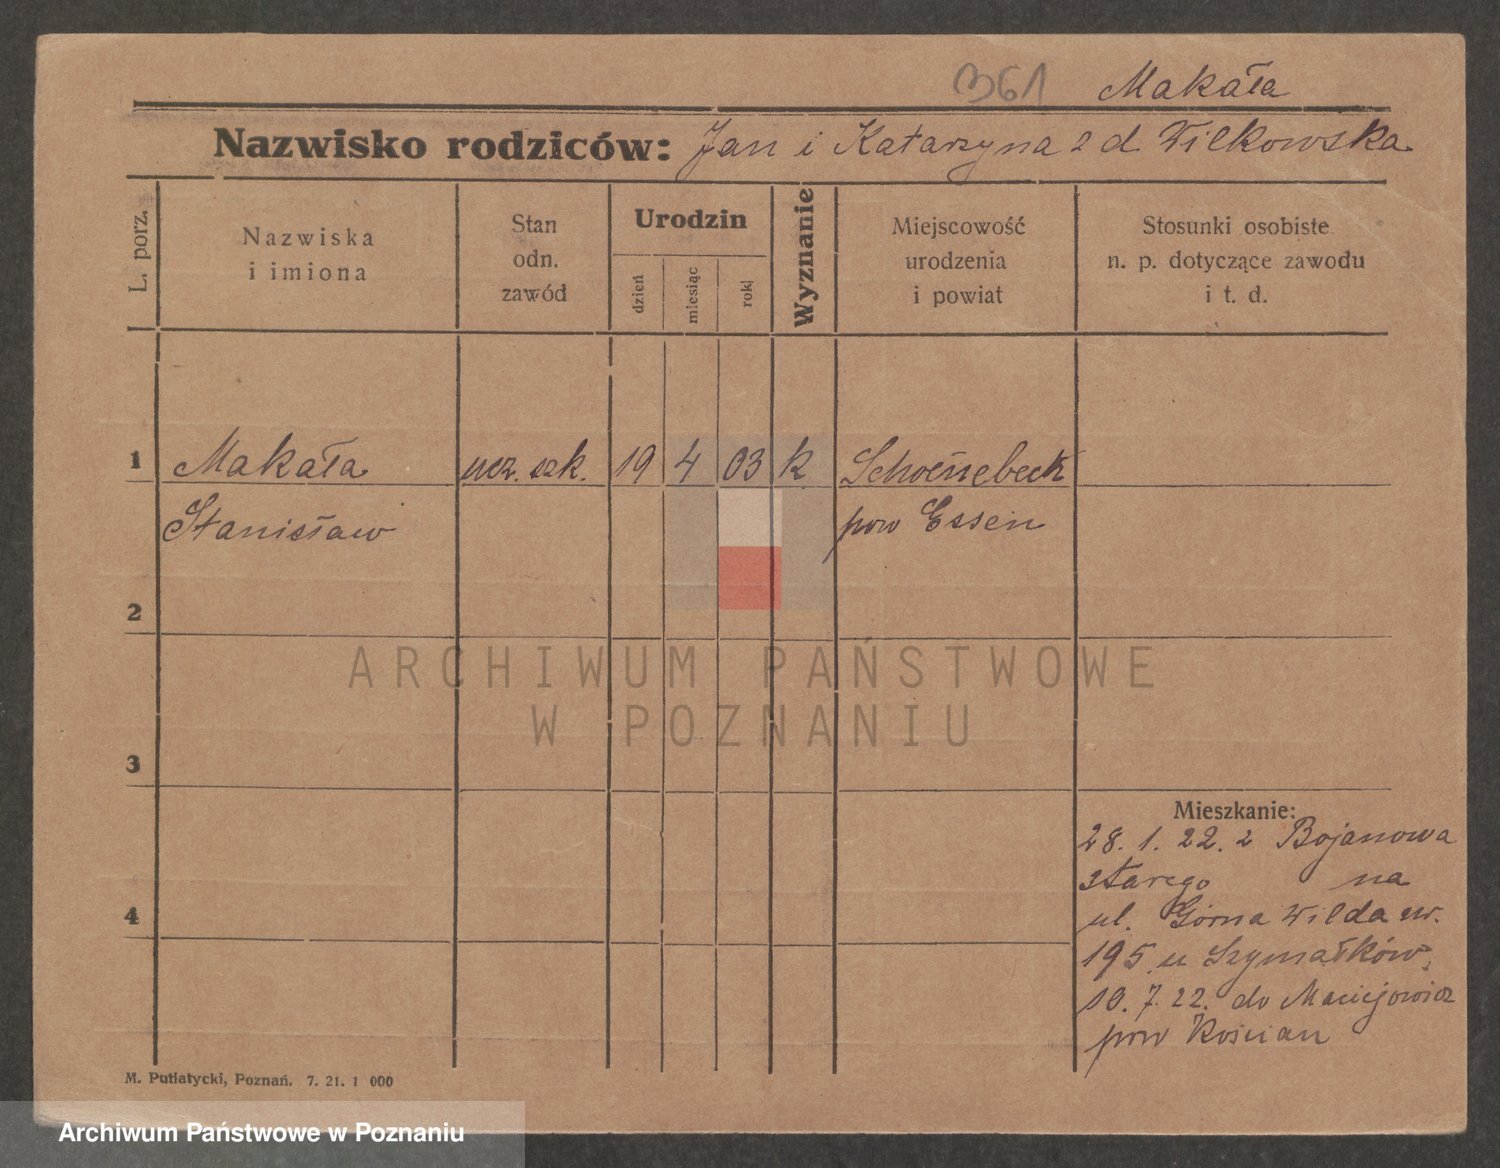 361 Makała
Nazwisko rodziców: Jan i Katarzyna z d. Wilkowska
L. porz.
Nazwiska
i imiona
Stan
odn.
zawód
Urodzin
dzień
miesiąc
rok
Wyznanie
Miejscowość
urodzenia
i powiat
Stosunki osobiste
n. p. dotyczące zawodu
i t. d.
1 Makała ucz. szk. 19 4 03 k Schoenebeck
Stanisław pow Essen
2
ARCHIWUM PAŃSTWOWE
W POZNANIU
3
Mieszkanie:
28. 1. 22. z Bojanowa
starego na
ul. Górna Wilda nr.
195 u Szymałków
10. 7. 22. do
pow Kościan
4
M. Putiatycki, Poznań. 7. 21. 1 000
Archiwum Państwowe w Poznaniu